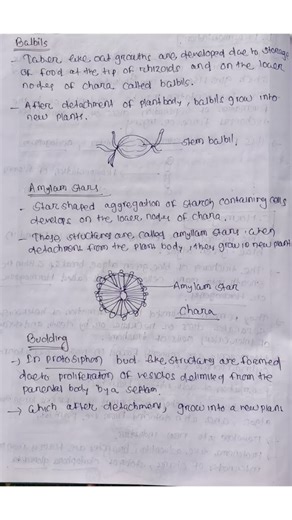 Balbils
- Tuber like out growths are, developed due to storage
of food at the tip of rhizoids and on the lower
nodes of chara called balbils.
- After detachment of plantbody, balbils grow into
new plants.
stem balbil.
Amylam stars
- Star shaped aggregation of starch containing cells
develops on the lower nodes of chara.
- These structures are called amyllam stars. when
detachment from the plant body, they grow to new plant
Amylam star
Chara
Budding
→ In protosiphon bud like structures are formed
due to proliferation of vesicles delimited from the
parental body by a septum
→ Which after detachment, grow into a new plant